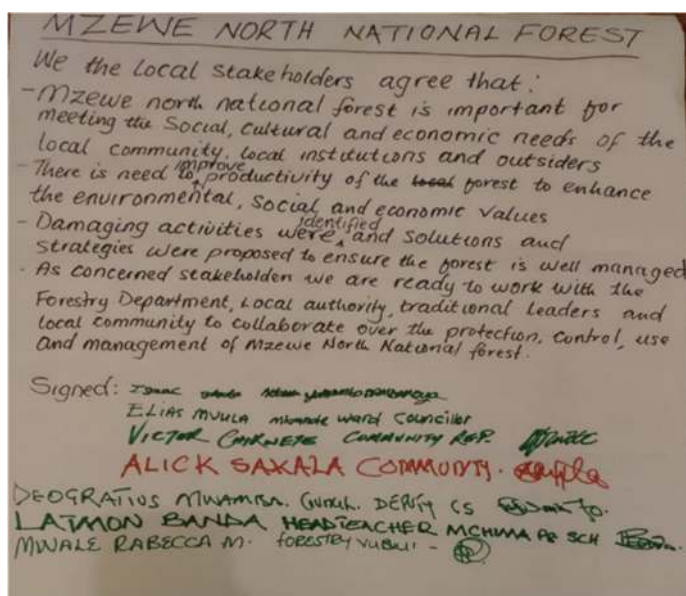 MZEWE NORTH NATIONAL FOREST
We the local stakeholders agree that:
- Mzewe north national forest is important for
meeting the Social, Cultural and economic needs of the
local community, local institutions and outsiders
- There is need to improve productivity of the local forest to enhance
the environmental, social and economic values
- Damaging activities were identified and solutions and
strategies were proposed to ensure the forest is well managed
- As concerned stakeholders we are ready to work with the
Forestry Department, Local authority, traditional leaders and
local community to collaborate over the protection, control, use
and management of Mzewe North National forest.
Signed: Isaac
ELIAS MVULA ward Councillor
VICTOR COMMUNITY REP.
ALICK SAKALA COMMUNITY.
DEOGRATIUS DEPUTY CS
LAIMON BANDA HEADTEACHER MCHIMA PR SCH
MWALE RABECCA M. FORESTRY